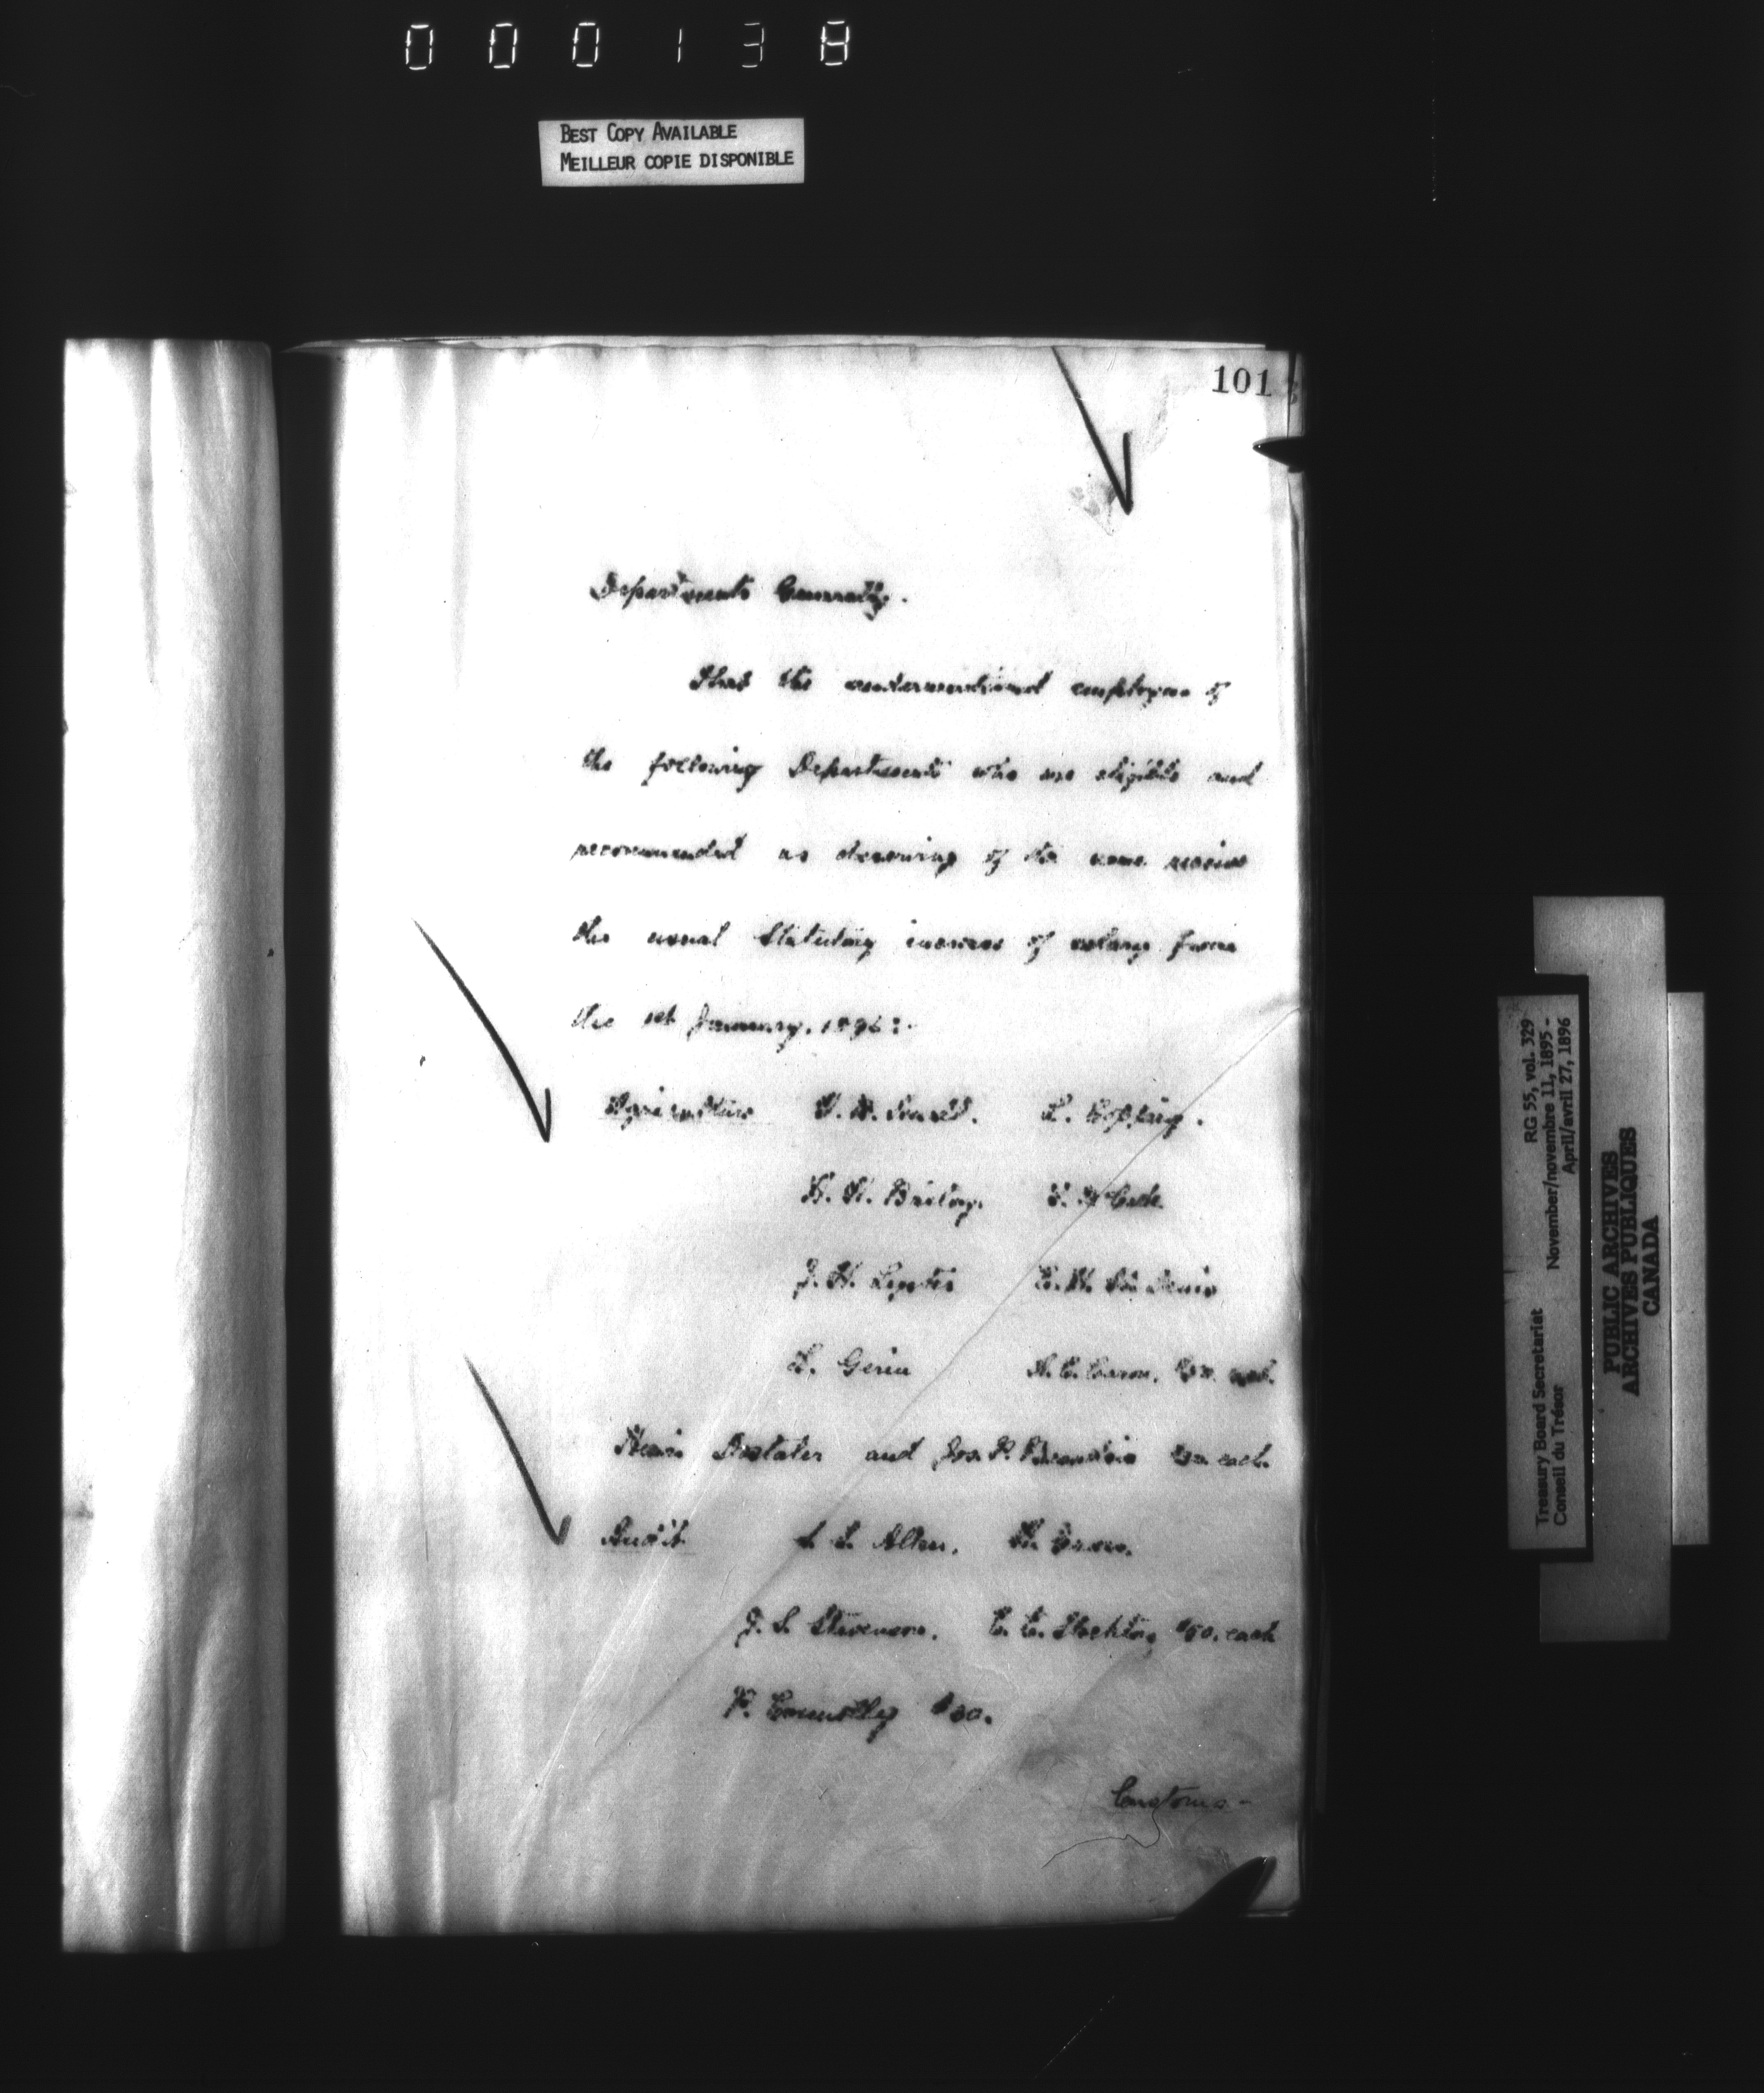 000138
BEST COPY AVAILABLE
MEILLEUR COPIE DISPONIBLE
101
Departments Generally.
That the undermentioned employees of
the following Departments who are eligible and
recommended as deserving of the same receive
the usual Statutory increase of salary from
the 1st January, 1896:-
Agriculture L. Copping.
H. H. Bailey.
J. H. St. Denis
L. Gerin Caron. each.
and Jos. P. each.
Audit Allen.
J. S. Stevenson. C. E. Stockton, $50. each
P. Connolly $30.
Customs-
Treasury Board Secretariat RG 55, vol. 329
Conseil du Trésor November/novembre 11, 1895 -
April/avril 27, 1896
PUBLIC ARCHIVES
ARCHIVES PUBLIQUES
CANADA